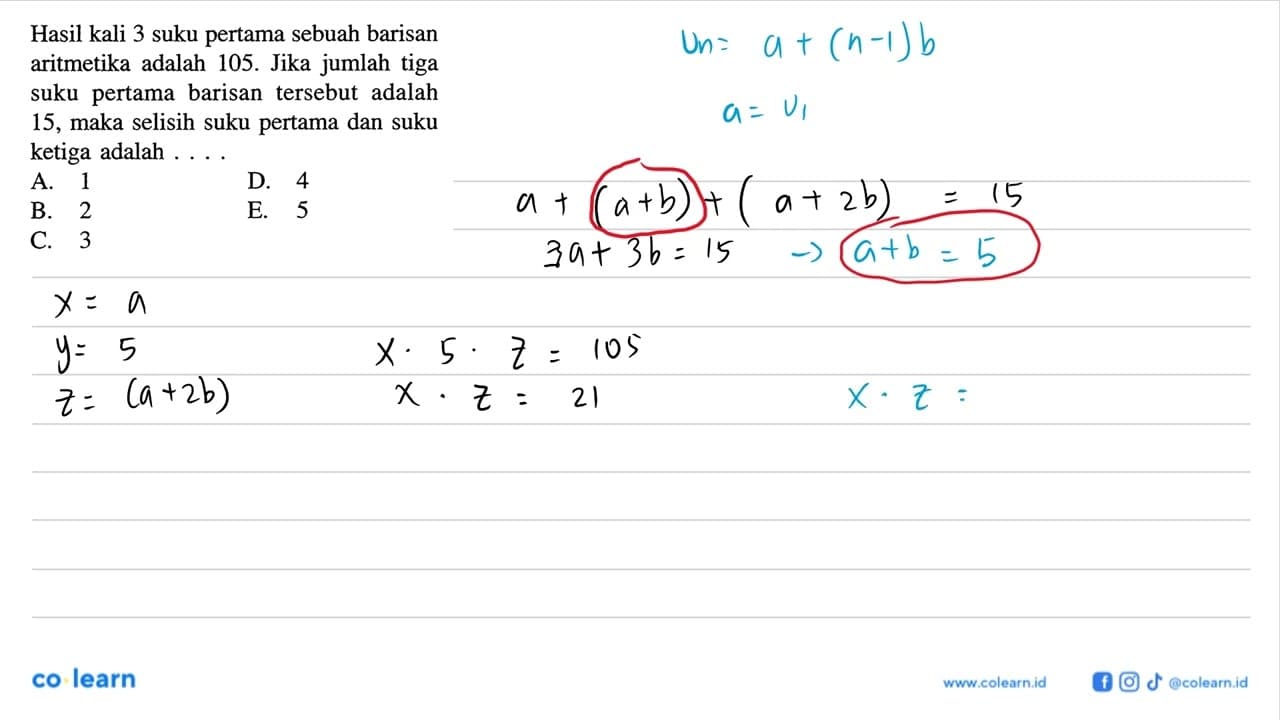 Hasil kali 3 suku pertama sebuah barisan
aritmetika adalah 105. Jika jumlah tiga
suku pertama barisan tersebut adalah
15, maka selisih suku pertama dan suku
ketiga adalah . . . .
A. 1 D. 4
B. 2 E. 5
C. 3
Un= a + (n-1)b
a = U₁
a + (a+b) + (a+2b) = 15
3a + 3b = 15 → a+b = 5
x = a
y = 5
z = (a+2b)
x · 5 · z = 105
x · z = 21
x · z =
co learn
www.colearn.id
@colearn.id